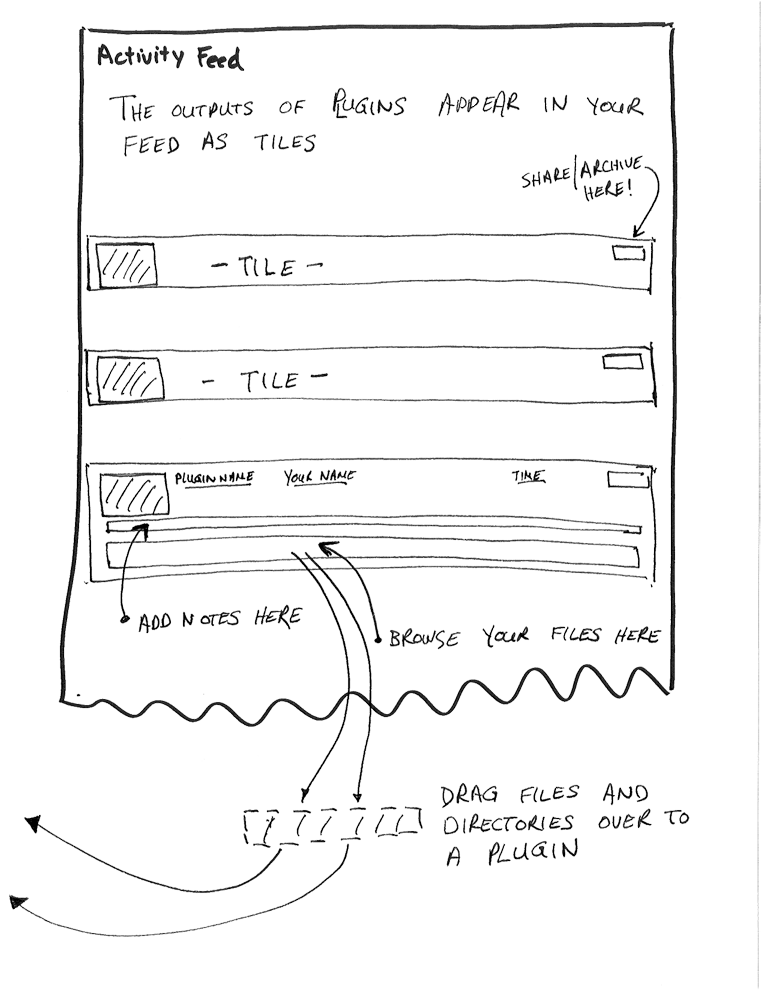 Activity Feed
THE OUTPUTS OF PLUGINS APPEAR IN YOUR
FEED AS TILES
SHARE/ARCHIVE
HERE!
- TILE -
- TILE -
PLUGIN NAME YOUR NAME TIME
ADD NOTES HERE
BROWSE YOUR FILES HERE
DRAG FILES AND
DIRECTORIES OVER TO
A PLUGIN